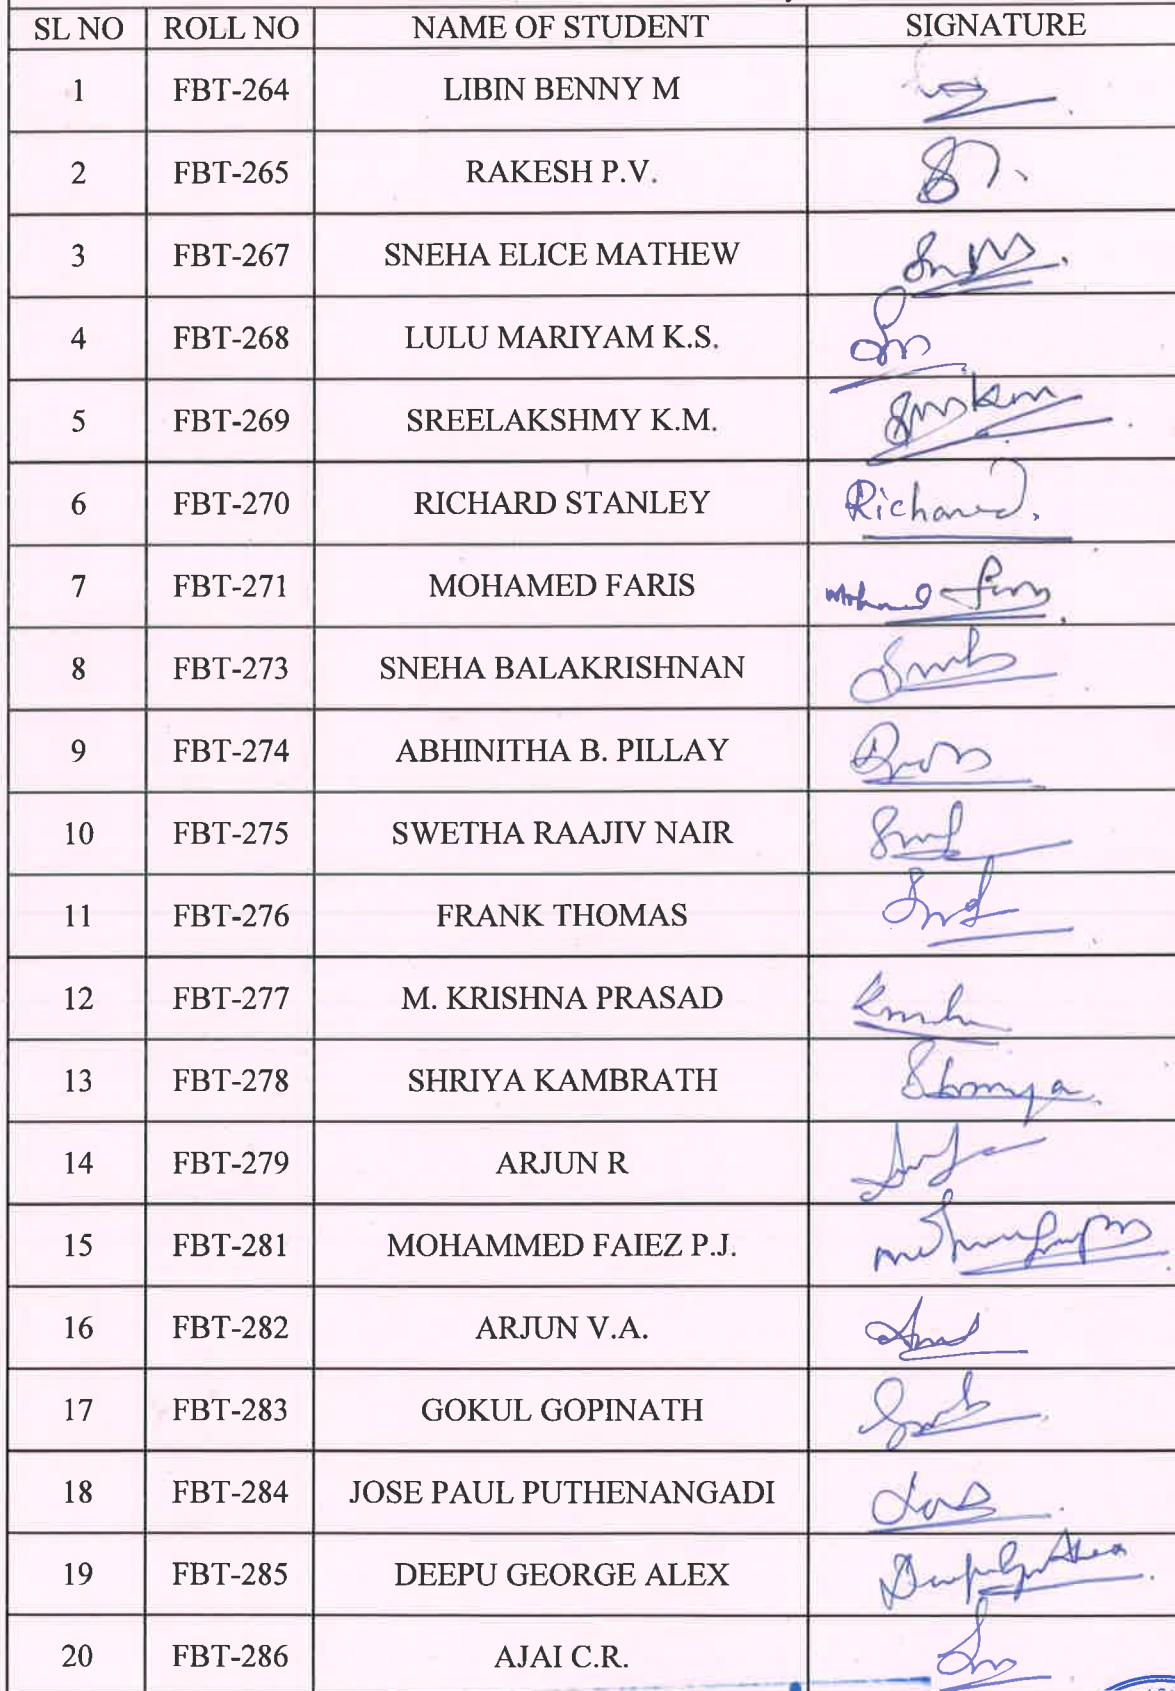 SL NO ROLL NO NAME OF STUDENT SIGNATURE
1 FBT-264 LIBIN BENNY M
2 FBT-265 RAKESH P.V.
3 FBT-267 SNEHA ELICE MATHEW
4 FBT-268 LULU MARIYAM K.S.
5 FBT-269 SREELAKSHMY K.M.
6 FBT-270 RICHARD STANLEY Richard.
7 FBT-271 MOHAMED FARIS
8 FBT-273 SNEHA BALAKRISHNAN
9 FBT-274 ABHINITHA B. PILLAY
10 FBT-275 SWETHA RAAJIV NAIR
11 FBT-276 FRANK THOMAS
12 FBT-277 M. KRISHNA PRASAD
13 FBT-278 SHRIYA KAMBRATH
14 FBT-279 ARJUN R
15 FBT-281 MOHAMMED FAIEZ P.J.
16 FBT-282 ARJUN V.A.
17 FBT-283 GOKUL GOPINATH
18 FBT-284 JOSE PAUL PUTHENANGADI
19 FBT-285 DEEPU GEORGE ALEX
20 FBT-286 AJAI C.R.